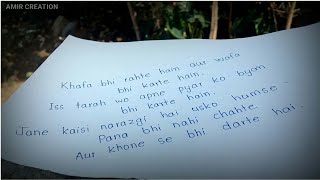 AMIR CREATION
Khafa bhi rahte hain aur wafa
bhi karte hain.
Iss tarah wo apne pyar ko byan
bhi karte hain.
Jane kaisi narazgi hai usko humse
Pana bhi nahi chahte.
Aur khone se bhi darte hai.